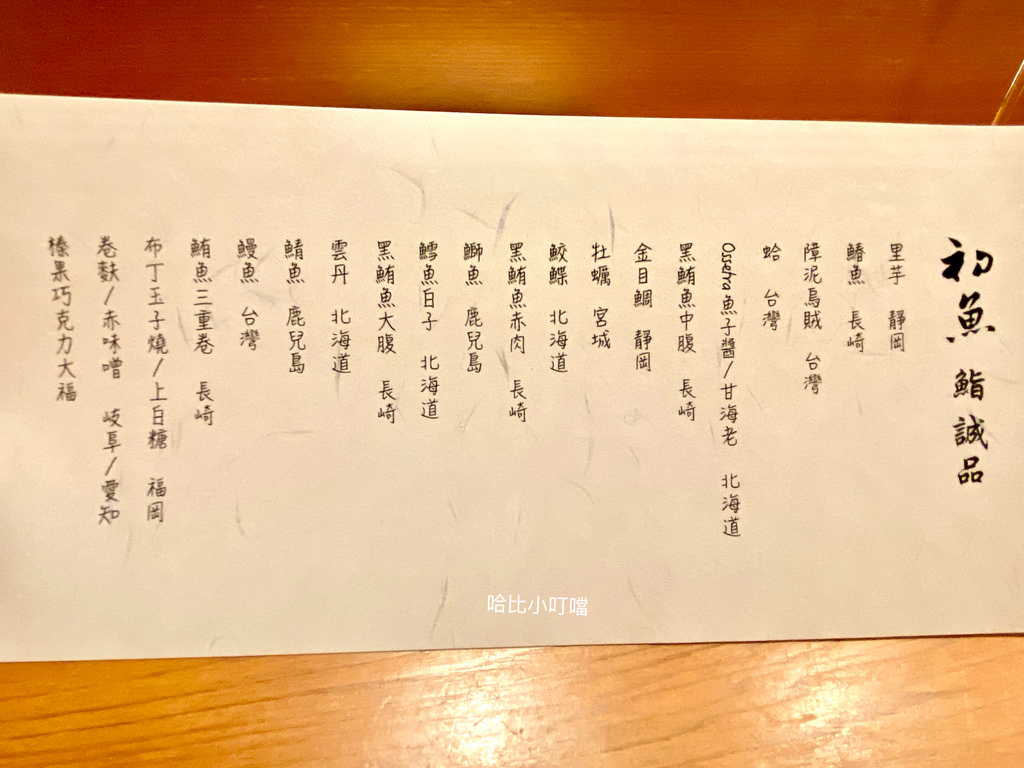 初魚 鮨 誠品
里芋 靜岡
鰆魚 長崎
障泥烏賊 台灣
蛤 台灣
Ossetra魚子醬/甘海老 北海道
黑鮪魚中腹 長崎
金目鯛 靜岡
牡蠣 宮城
鮫鰈 北海道
黑鮪魚赤肉 長崎
鰤魚 鹿兒島
鱈魚白子 北海道
黑鮪魚大腹 長崎
雲丹 北海道
鯖魚 鹿兒島
鰻魚 台灣
鮪魚三重卷 長崎
布丁玉子燒/上白糖 福岡
卷麩/赤味噌 岐阜/愛知
榛果巧克力大福
哈比小叮噹